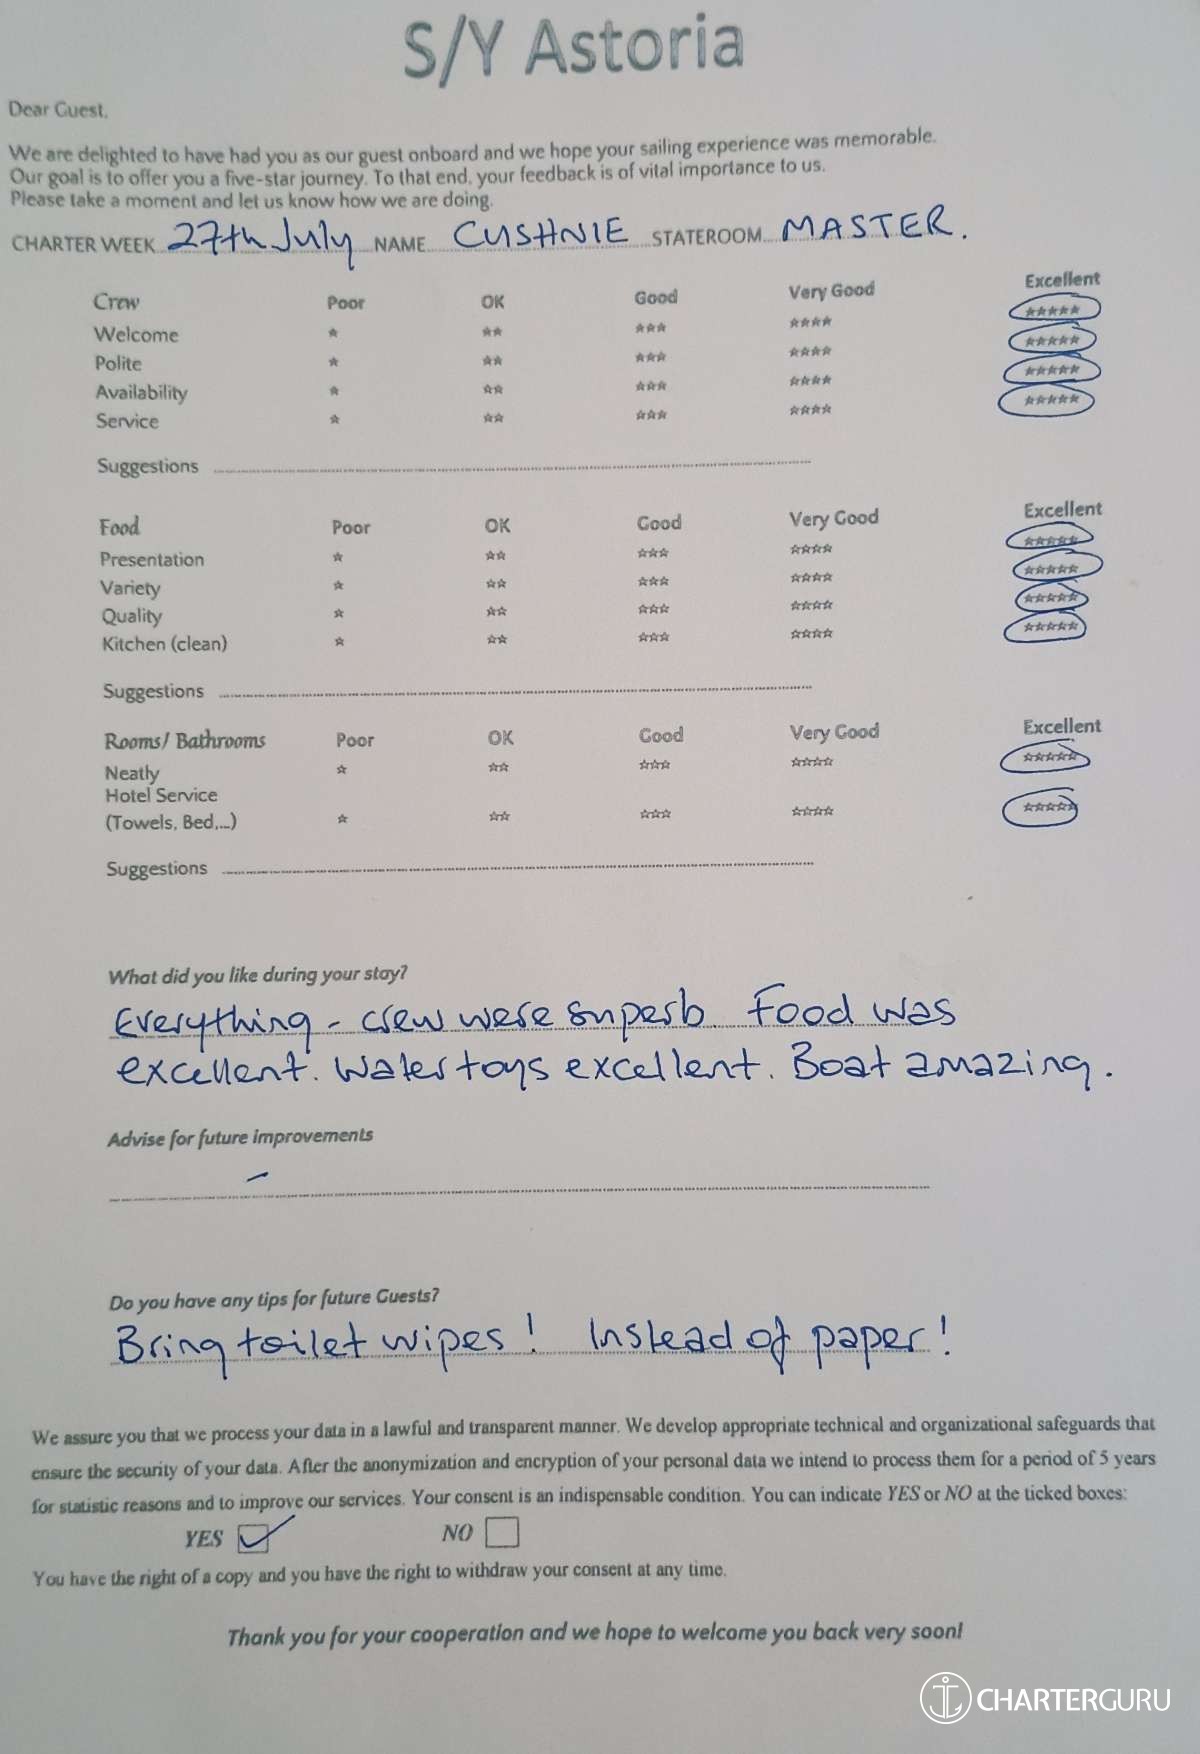 S/Y Astoria
Dear Guest,
We are delighted to have had you as our guest onboard and we hope your sailing experience was memorable.
Our goal is to offer you a five-star journey. To that end, your feedback is of vital importance to us.
Please take a moment and let us know how we are doing.
CHARTER WEEK 27th July NAME CUSHNIE STATEROOM MASTER.
Crew Poor OK Good Very Good Excellent
Welcome ★ ★★ ★★★ ★★★★ ★★★★★
Polite ★ ★★ ★★★ ★★★★ ★★★★★
Availability ★ ★★ ★★★ ★★★★ ★★★★★
Service ★ ★★ ★★★ ★★★★ ★★★★★
Suggestions
Food Poor OK Good Very Good Excellent
Presentation ★ ★★ ★★★ ★★★★ ★★★★★
Variety ★ ★★ ★★★ ★★★★ ★★★★★
Quality ★ ★★ ★★★ ★★★★ ★★★★★
Kitchen (clean) ★ ★★ ★★★ ★★★★ ★★★★★
Suggestions
Rooms/ Bathrooms Poor OK Good Very Good Excellent
Neatly ★ ★★ ★★★ ★★★★ ★★★★★
Hotel Service
(Towels, Bed,...) ★ ★★ ★★★ ★★★★ ★★★★★
Suggestions
What did you like during your stay?
Everything - crew were superb. Food was
excellent. Water toys excellent. Boat amazing.
Advise for future improvements
-
Do you have any tips for future Guests?
Bring toilet wipes! Instead of paper!
We assure you that we process your data in a lawful and transparent manner. We develop appropriate technical and organizational safeguards that
ensure the security of your data. After the anonymization and encryption of your personal data we intend to process them for a period of 5 years
for statistic reasons and to improve our services. Your consent is an indispensable condition. You can indicate YES or NO at the ticked boxes:
YES NO
You have the right of a copy and you have the right to withdraw your consent at any time.
Thank you for your cooperation and we hope to welcome you back very soon!
CHARTERGURU